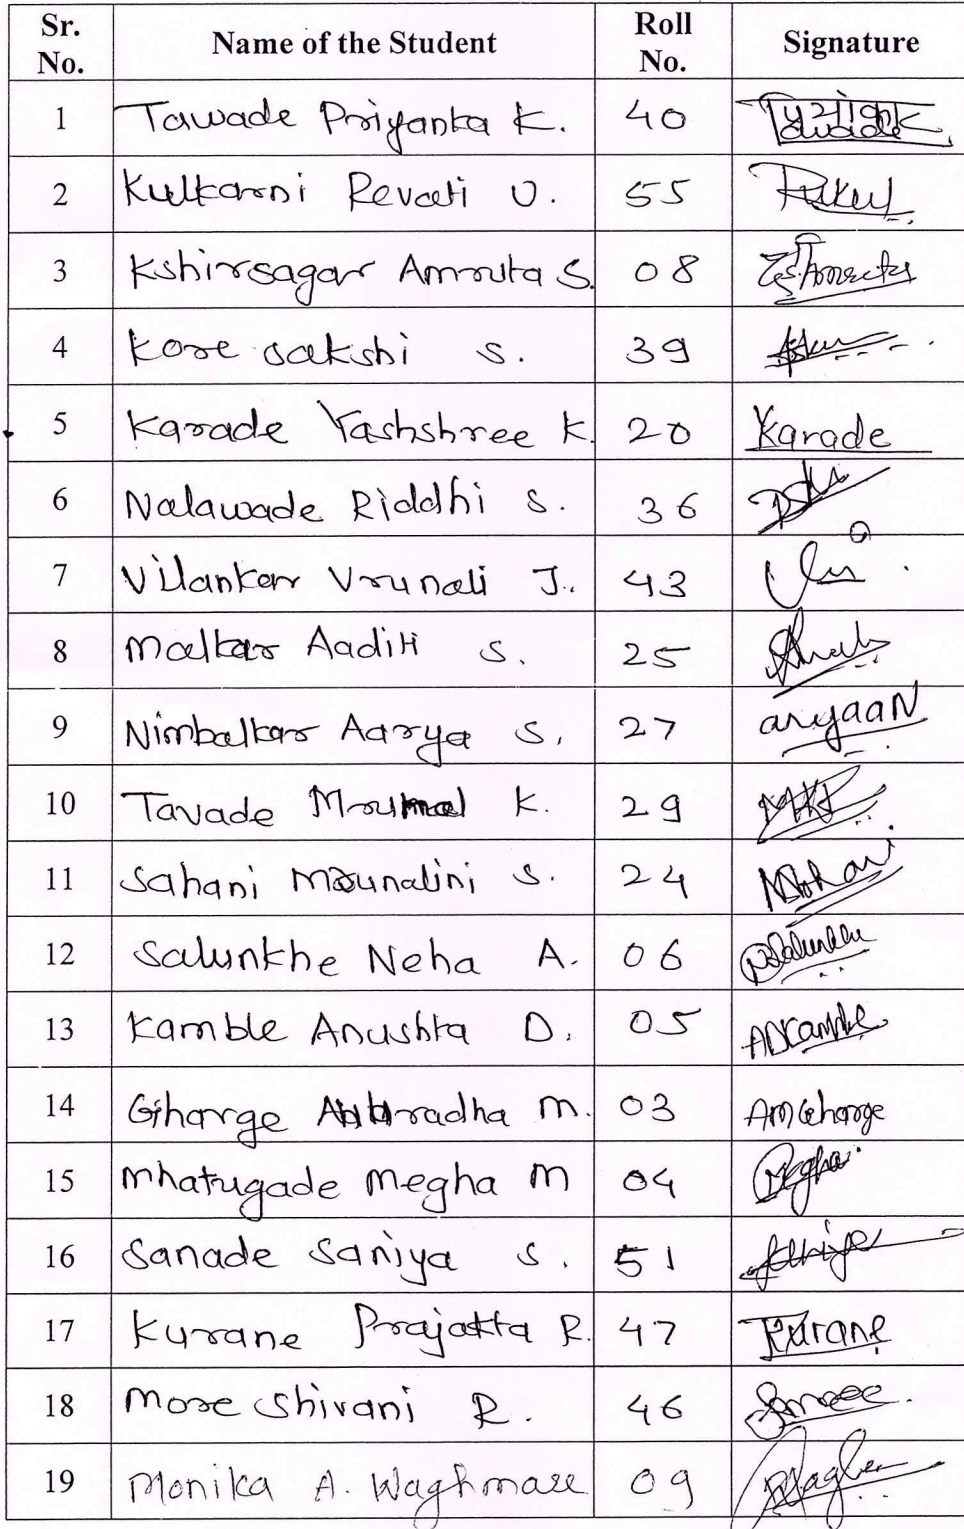 Sr. No. Name of the Student Roll No. Signature
1 Tawade Priyanka K. 40
2 Kulkarni Revati U. 55
3 Kshirsagar Amruta S. 08
4 Kore sakshi S. 39
5 Karade Yashshree K. 20 Karade
6 Nalawade Riddhi S. 36
7 Vilankar Vrunali J. 43
8 Malkar Aaditi S. 25
9 Nimbalkar Aarya S. 27 aryaaN
10 Tavade K. 29
11 Sahani Mrunalini S. 24
12 Salunkhe Neha A. 06
13 Kamble Anushka D. 05 ADKamble
14 Gharge M. 03 AMGharge
15 Mhatugade Megha M 04 Megha
16 Sanade Saniya S. 51
17 Kurane Prajakta R. 47 Kurane
18 More Shivani R. 46
19 Monika A. Waghmare 09